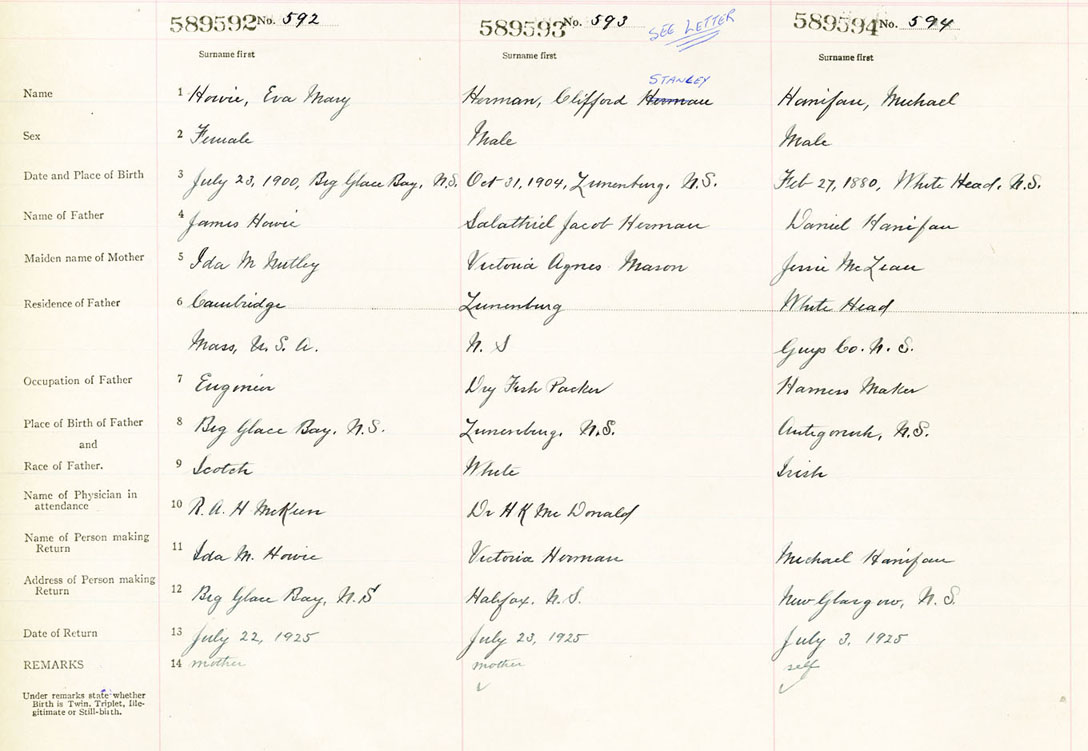 589592 No. 592 589593 No. 593 SEE LETTER 589594 No. 594
Surname first Surname first Surname first
STANLEY
Name 1 Howie, Eva Mary Herman, Clifford Herman Hanifan, Michael
Sex 2 Female Male Male
Date and Place of Birth 3 July 23, 1900, Big Glace Bay, N.S. Oct 31, 1904, Lunenburg, N.S. Feb 27, 1880, White Head, N.S.
Name of Father 4 James Howie Salathiel Jacob Herman Daniel Hanifan
Maiden name of Mother 5 Ida M Nutley Victoria Agnes Mason Jessie McLean
Residence of Father 6 Cambridge Lunenburg White Head
Mass, U.S.A. N.S Guys Co. N.S.
Occupation of Father 7 Engineer Dry Fish Packer Harness Maker
Place of Birth of Father 8 Big Glace Bay, N.S. Lunenburg, N.S. Antigonish, N.S.
and
Race of Father. 9 Scotch White Irish
Name of Physician in
attendance 10 R. A. H McKeen Dr H K Mc Donald
Name of Person making
Return 11 Ida M. Howie Victoria Herman Michael Hanifan
Address of Person making
Return 12 Big Glace Bay, N.S Halifax, N.S. New Glasgow, N.S.
Date of Return 13 July 22, 1925 July 23, 1925 July 3, 1925
REMARKS 14 mother mother self
Under remarks state whether
Birth is Twin, Triplet, Ille-
gitimate or Still-birth.